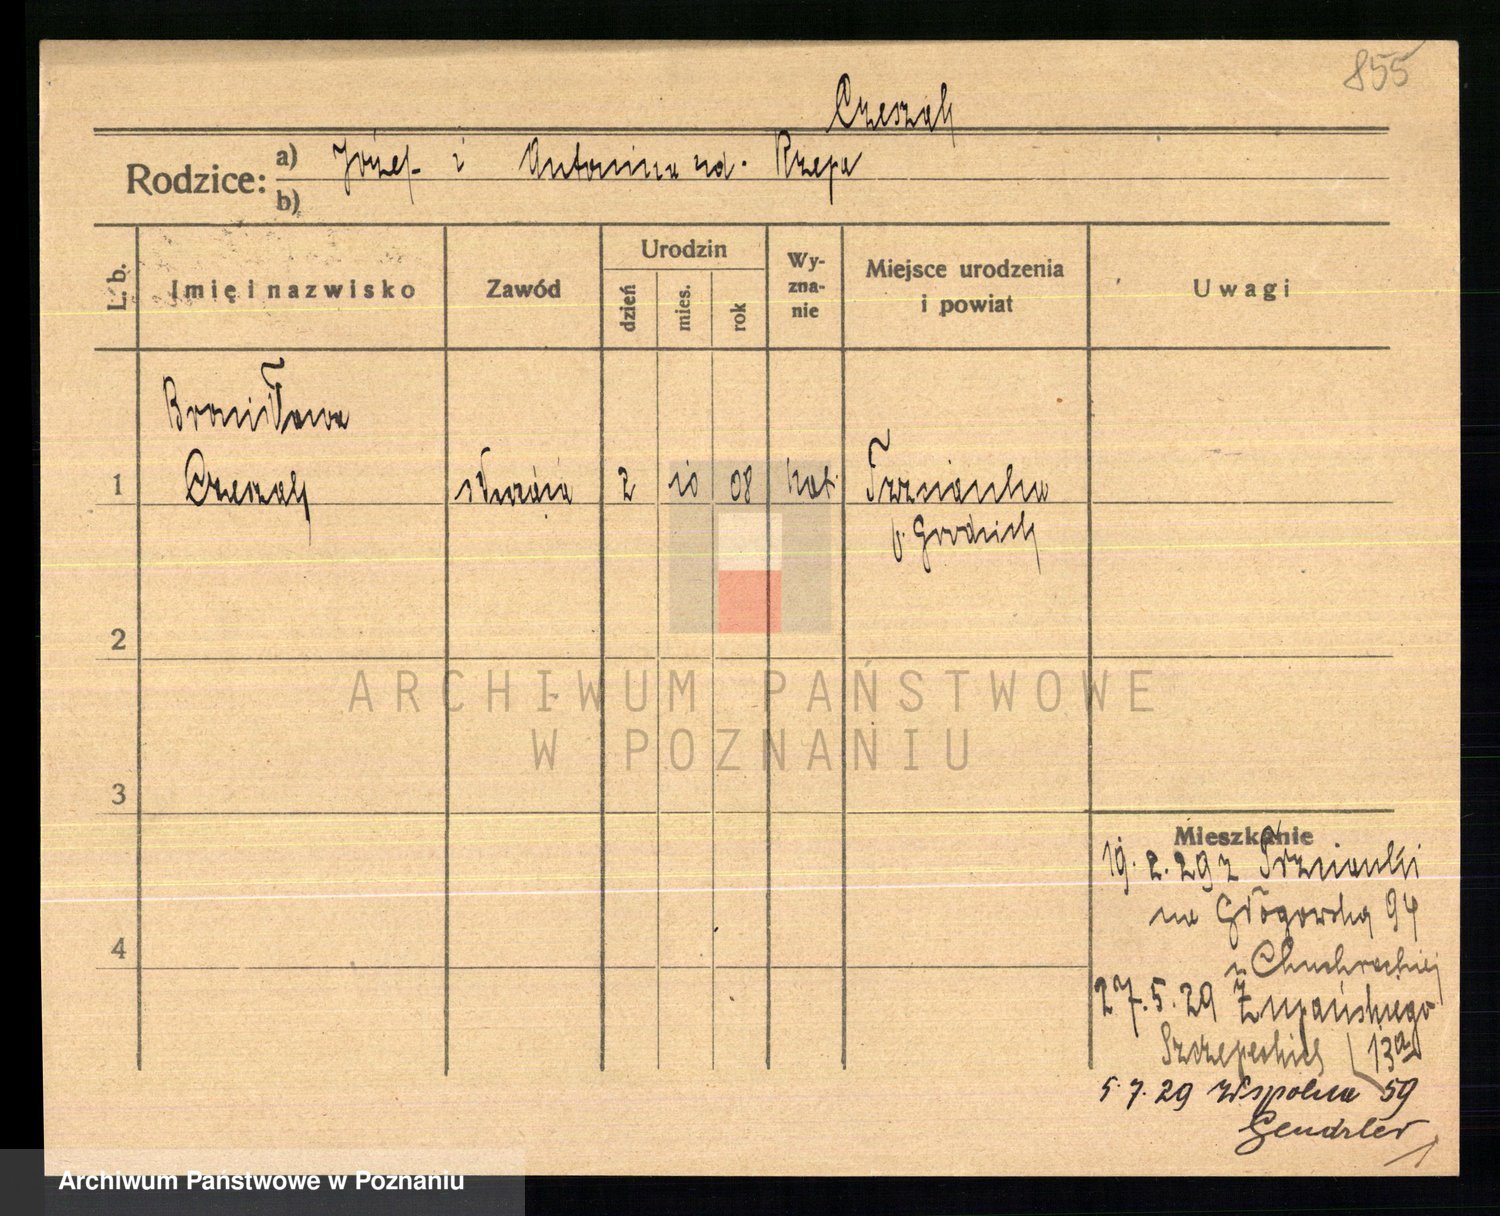 855
Czeszak
Rodzice: a) Józef i Antonina ur. Rzepa
b)
L. b. Imię i nazwisko Zawód Urodzin dzień mies. rok Wyzna-nie Miejsce urodzenia i powiat Uwagi
Bronisława
1 Czeszak służąca 2 10 08 kat. Trzcianka
p. Grodzisk
2
ARCHIWUM PAŃSTWOWE
W POZNANIU
3
Mieszkanie
19.2.29 z Trzcianki
na Głogowska 94
4
27.5.29 Żupańskiego
13a
5.7.29 Wspólna 59
Gendzler
Archiwum Państwowe w Poznaniu